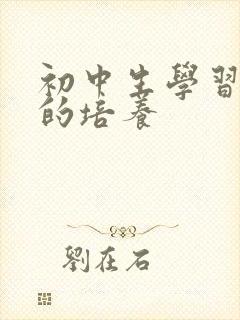 初中生學習
的培養
劉在石